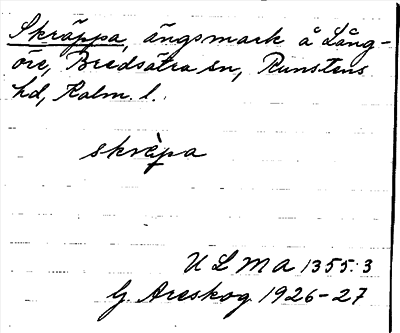 Skräppa, ängsmark å Lång-
öre, Bredsätra sn, Runstens
hd, Kalm. l.
skrèpa
ULMA 1355:3
G. Areskog 1926-27